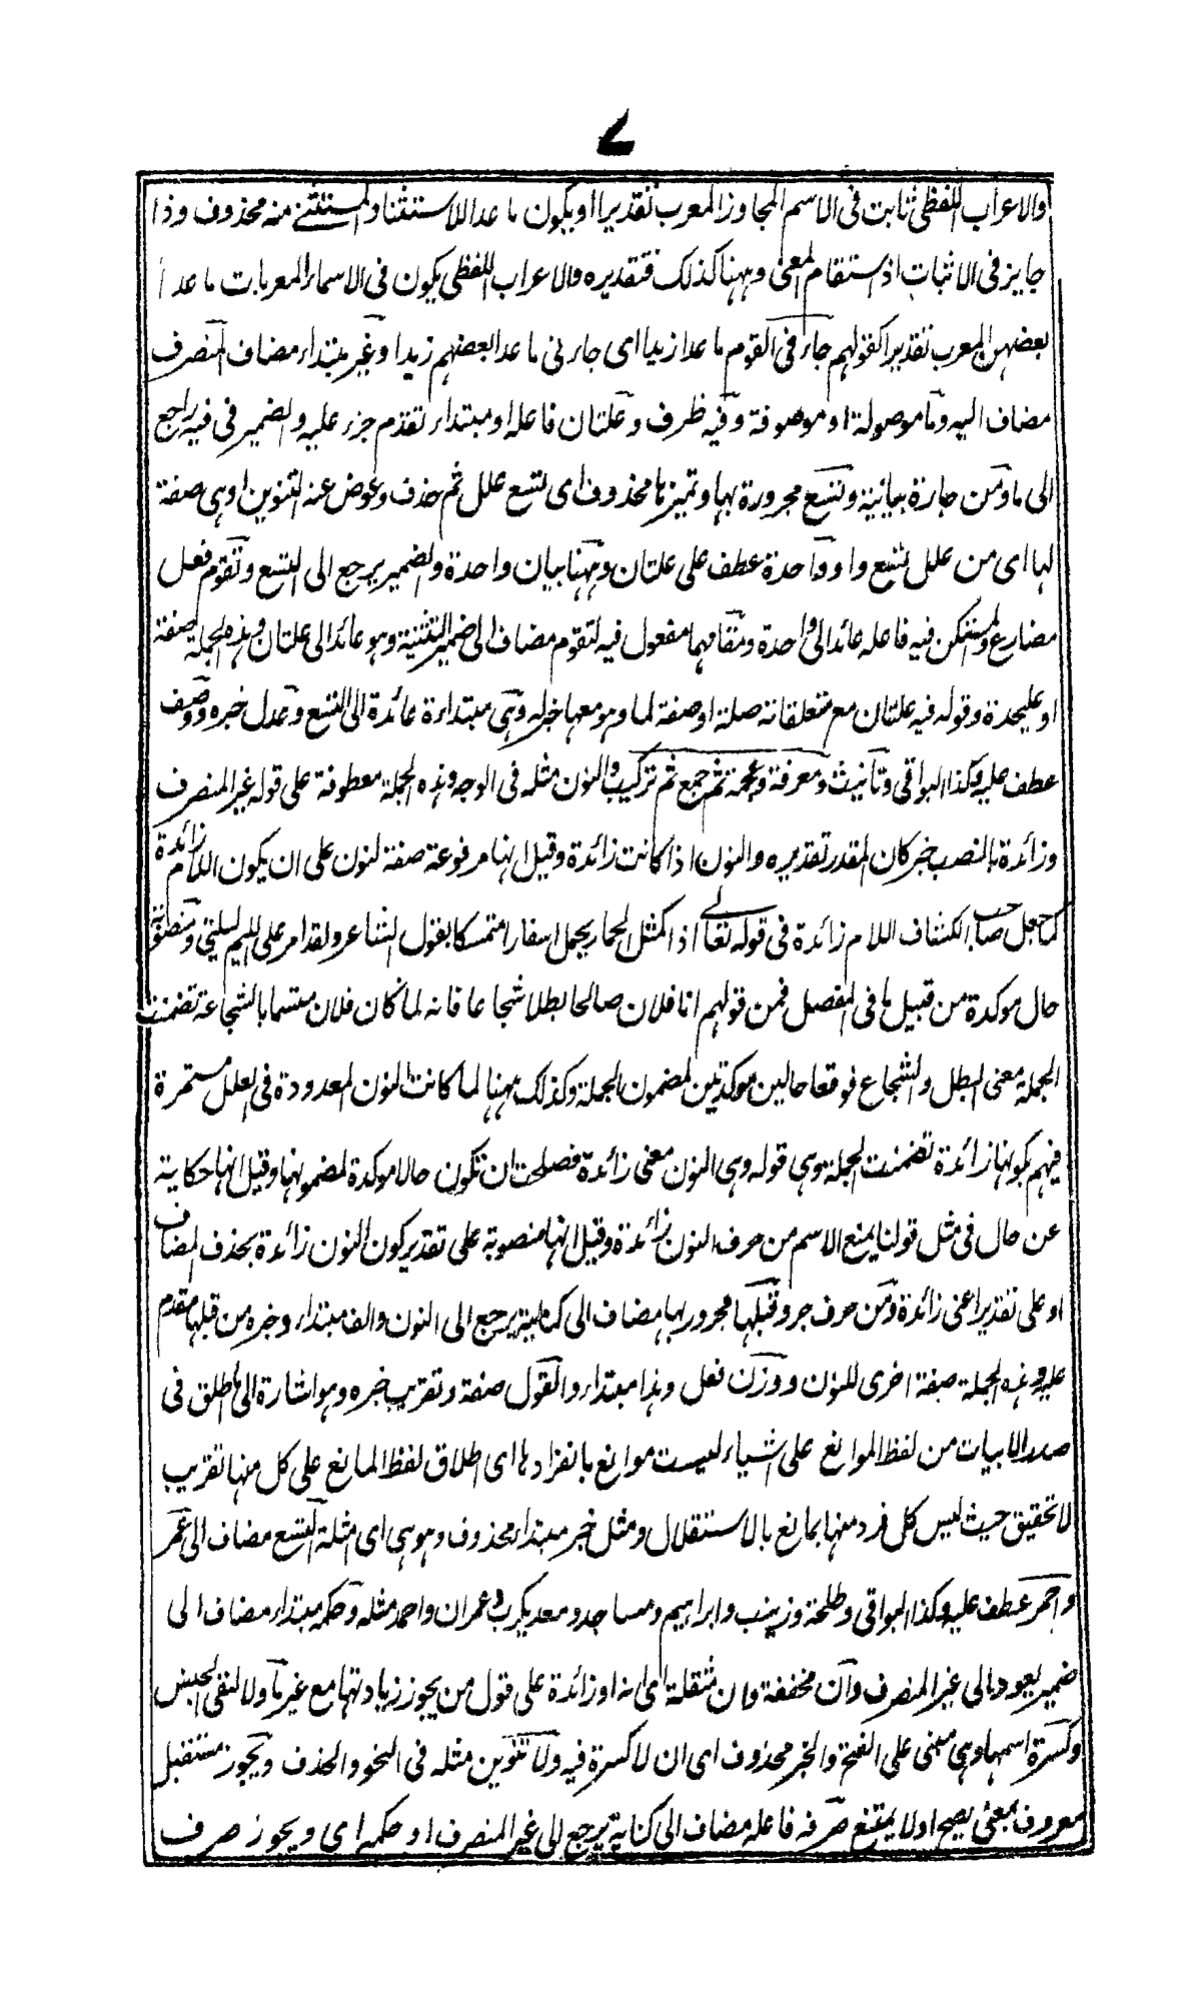 ٧
والاعراب اللفظى ثابت فى الاسم المجاوز المعرب تقديرا او يكون ما عدا للاستثناء والمستثنى منه محذوف وذا
جايز فى الاثبات اذ استقام المعنى وههنا كذلك فتقديره والاعراب اللفظى يكون فى الاسماء المعربات ما عدا
بعضهن المعرب تقديرا كقولهم جاءنى القوم ما عدا زيدا اى جاءنى ما عدا بعضهم زيدا وغير مبتداء مضاف المنصرف
مضاف اليه وما موصولة او موصوفة وفيه ظرف وعلتان فاعله او مبتداء تقدم خبره عليه والضمير فى فيه راجع
الى ما ومن جارة بيانية وتسع مجرورة بها وتميزها محذوف اى تسع علل ثم حذف وعوض عنه التنوين اوهى صفة
لها اى من علل تسع واو واحدة عطف على علتان وههنا بيان واحدة والضمير يرجع الى التسع وتقوم فعل
مضارع والمستكن فيه فاعله عائد الى واحدة ومقامهما مفعول فيه لتقوم مضاف الى ضمير التثنية وهو عائد الى علتان وهذه الجملة صفة
او عليحدة وقوله فيه علتان مع متعلقاته صلة او صفة لما وهو معها خبره وهى مبتداءة عائدة الى التسع وعدل خبره ووصف
عطف عليه وكذا البواقى وتانيث ومعرفة وعجمة ثم جمع ثم تركيب والنون مثله فى الوجه وهذه الجملة معطوفة على قوله غير المنصرف
وزائدة بالنصب خبر كان المقدر تقديره والنون اذا كانت زائدة وقيل انها مرفوعة صفة لنون على ان يكون اللام زائدة
كما جعل صاحب الكشاف اللام زائدة فى قوله تعالى اذا كمثل الحمار يحمل اسفارا متمسكا بقول الشاعر ولقد امر على اللئيم يسبنى ومنصوبة
حال موكدة من قبيل ما فى المفصل فمن قولهم انا فلان صالحا بطلا شجاعا فانه لما كان فلان متسما بالشجاعة تضمنت
الجملة معنى البطل والشجاع فوقعا حالين موكدتين لمضمون الجملة وكذلك ههنا لما كانت النون المعدودة فى العلل مستمرة
فيهم بكونها زائدة تضمنت الجملة وهى قوله وهى النون معنى زائدة فصلحت ان تكون حالا موكدة لمضمونها وقيل انها حكاية
عن حال فى مثل قولنا يمنع الاسم من صرف النون زائدة وقيل انها منصوبة على تقدير كون النون زائدة بحذف المضاف
او على تقدير اعنى زائدة ومن حرف جر وقبلها مجرور بها مضاف الى كناية يرجع الى النون والف مبتداء وخبره من قبلها مقدم
عليه وهذه الجملة صفة اخرى للنون ووزن فعل وهذا مبتداء والقول صفة وتقريب خبره وهو اشارة الى ما طلق فى
صدر الابيات من لفظ الموانع على اشياء ليست موانع بانفرادها اى اطلاق لفظ المانع على كل منها تقريب
لا تحقيق حيث ليس كل فرد منها بمانع بالاستقلال ومثل خبر مبتداء محذوف وهو هى اى امثلة التسع مضاف الى عمر
واحمر عطف عليه وكذا البواقى وطلحة وزينب وابراهيم ومساجد ومعديكرب وعمران واحمد مثله وحكمه مبتداء مضاف الى
ضمير يعود الى غير المنصرف وان مخففة وان مثقلة اى انه او زائدة على قول من يجوز زيادتها مع غير ما ولا لنفى الجنس
وكسرة اسمها وهى مبنى على الفتح والخبر محذوف اى ان لا كسرة فيه ولا تنوين مثله فى النحو والحذف ويجوز مستقبل
معروف بمعنى يصح او لا يمتنع صرفه فاعله مضاف الى كناية يرجع الى غير المنصرف او حكمه اى ويجوز صرف